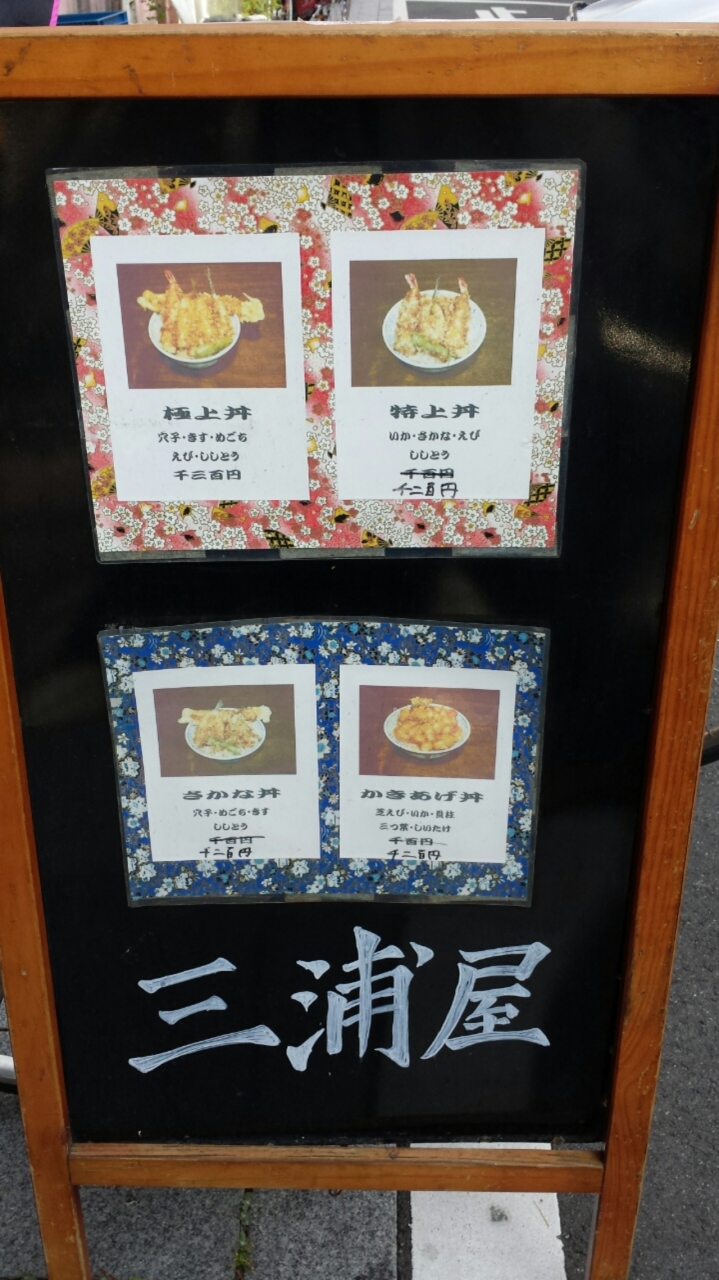 極上丼
穴子・きす・めごち
えび・ししとう
千三百円
特上丼
いか・さかな・えび
ししとう
千百円
千二百円
さかな丼
穴子・めごち・きす
ししとう
千百円
千二百円
かきあげ丼
芝えび・いか・貝柱
三つ葉・しいたけ
千百円
千二百円
三浦屋